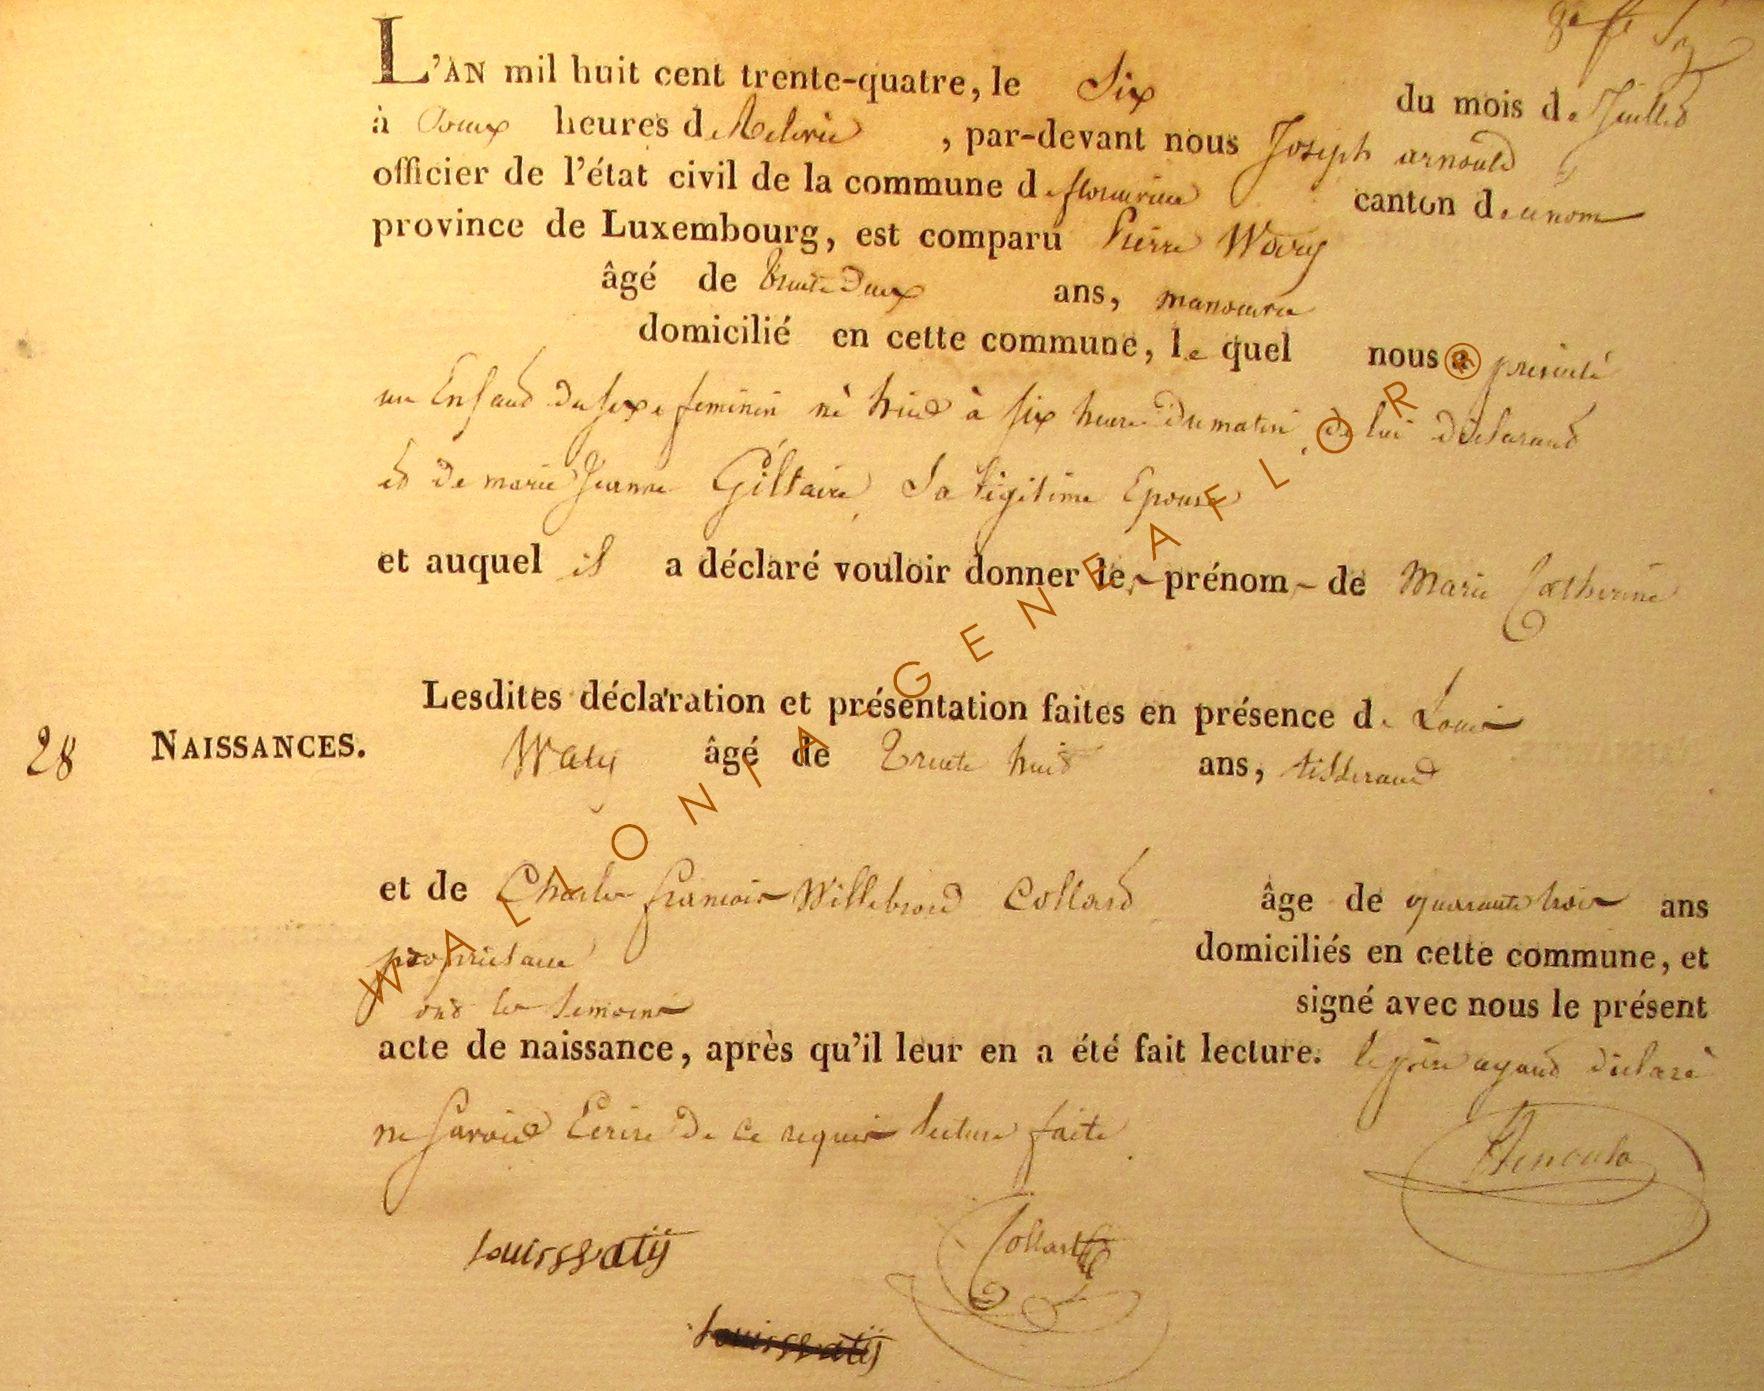 L'AN mil huit cent trente-quatre, le Six du mois de Juillet
à heures de Relevée, par-devant nous Joseph arnould
officier de l'état civil de la commune de florenville canton de
province de Luxembourg, est comparu Pierre Waty
âgé de trente deux ans, manoeuvre
domicilié en cette commune, le quel nous a présenté
un Enfand du sexe feminin né hied à six heure du matin de lui déclarand
et de marie Jeanne Giltaire Sa légitime Epouse
et auquel il a déclaré vouloir donner le prénom de Marie Catherine
Lesdites déclaration et présentation faites en présence de Louis
28 NAISSANCES. Waty âgé de Trente huit ans, tisserand
et de Charles françois Willebrord Collard âge de quarante trois ans
propriétaire domiciliés en cette commune, et
ont les témoins signé avec nous le présent
acte de naissance, après qu'il leur en a été fait lecture. le père ayand déclaré
ne Savoir Ecrire de ce requis lecture faite
Arnould
louis watij
Collard
louis watij
WALLONIA GENEAFLOR ®